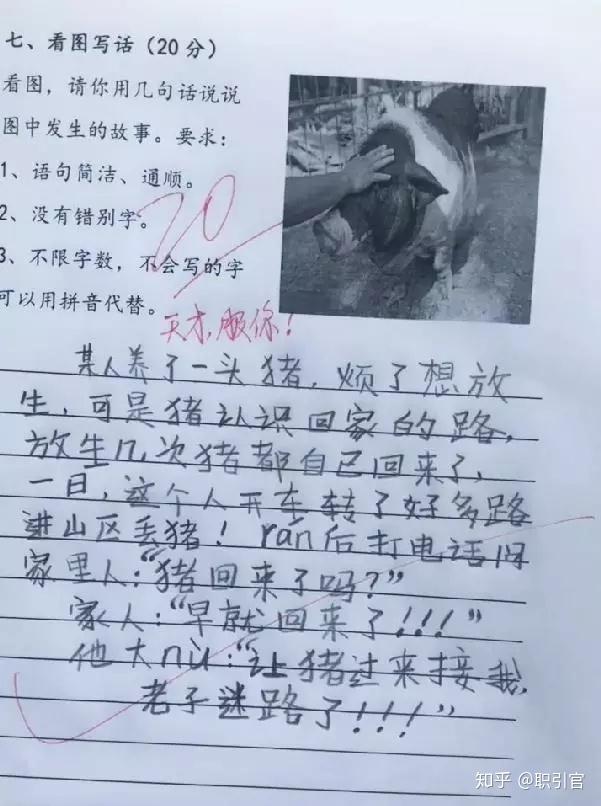 七、看图写话（20分）
看图，请你用几句话说说
图中发生的故事。要求：
1、语句简洁、通顺。
2、没有错别字。
3、不限字数，不会写的字
可以用拼音代替。
20
天才，服你！
某人养了一头猪，烦了想放
生，可是猪认识回家的路，
放生几次猪都自己回来了，
一日，这个人开车转了好多路
进山区丢猪！rán后打电话问
家里人：“猪回来了吗？”
家人：“早就回来了！！！”
他大nù：“让猪过来接我，
老子迷路了！！！”
知乎 @职引官